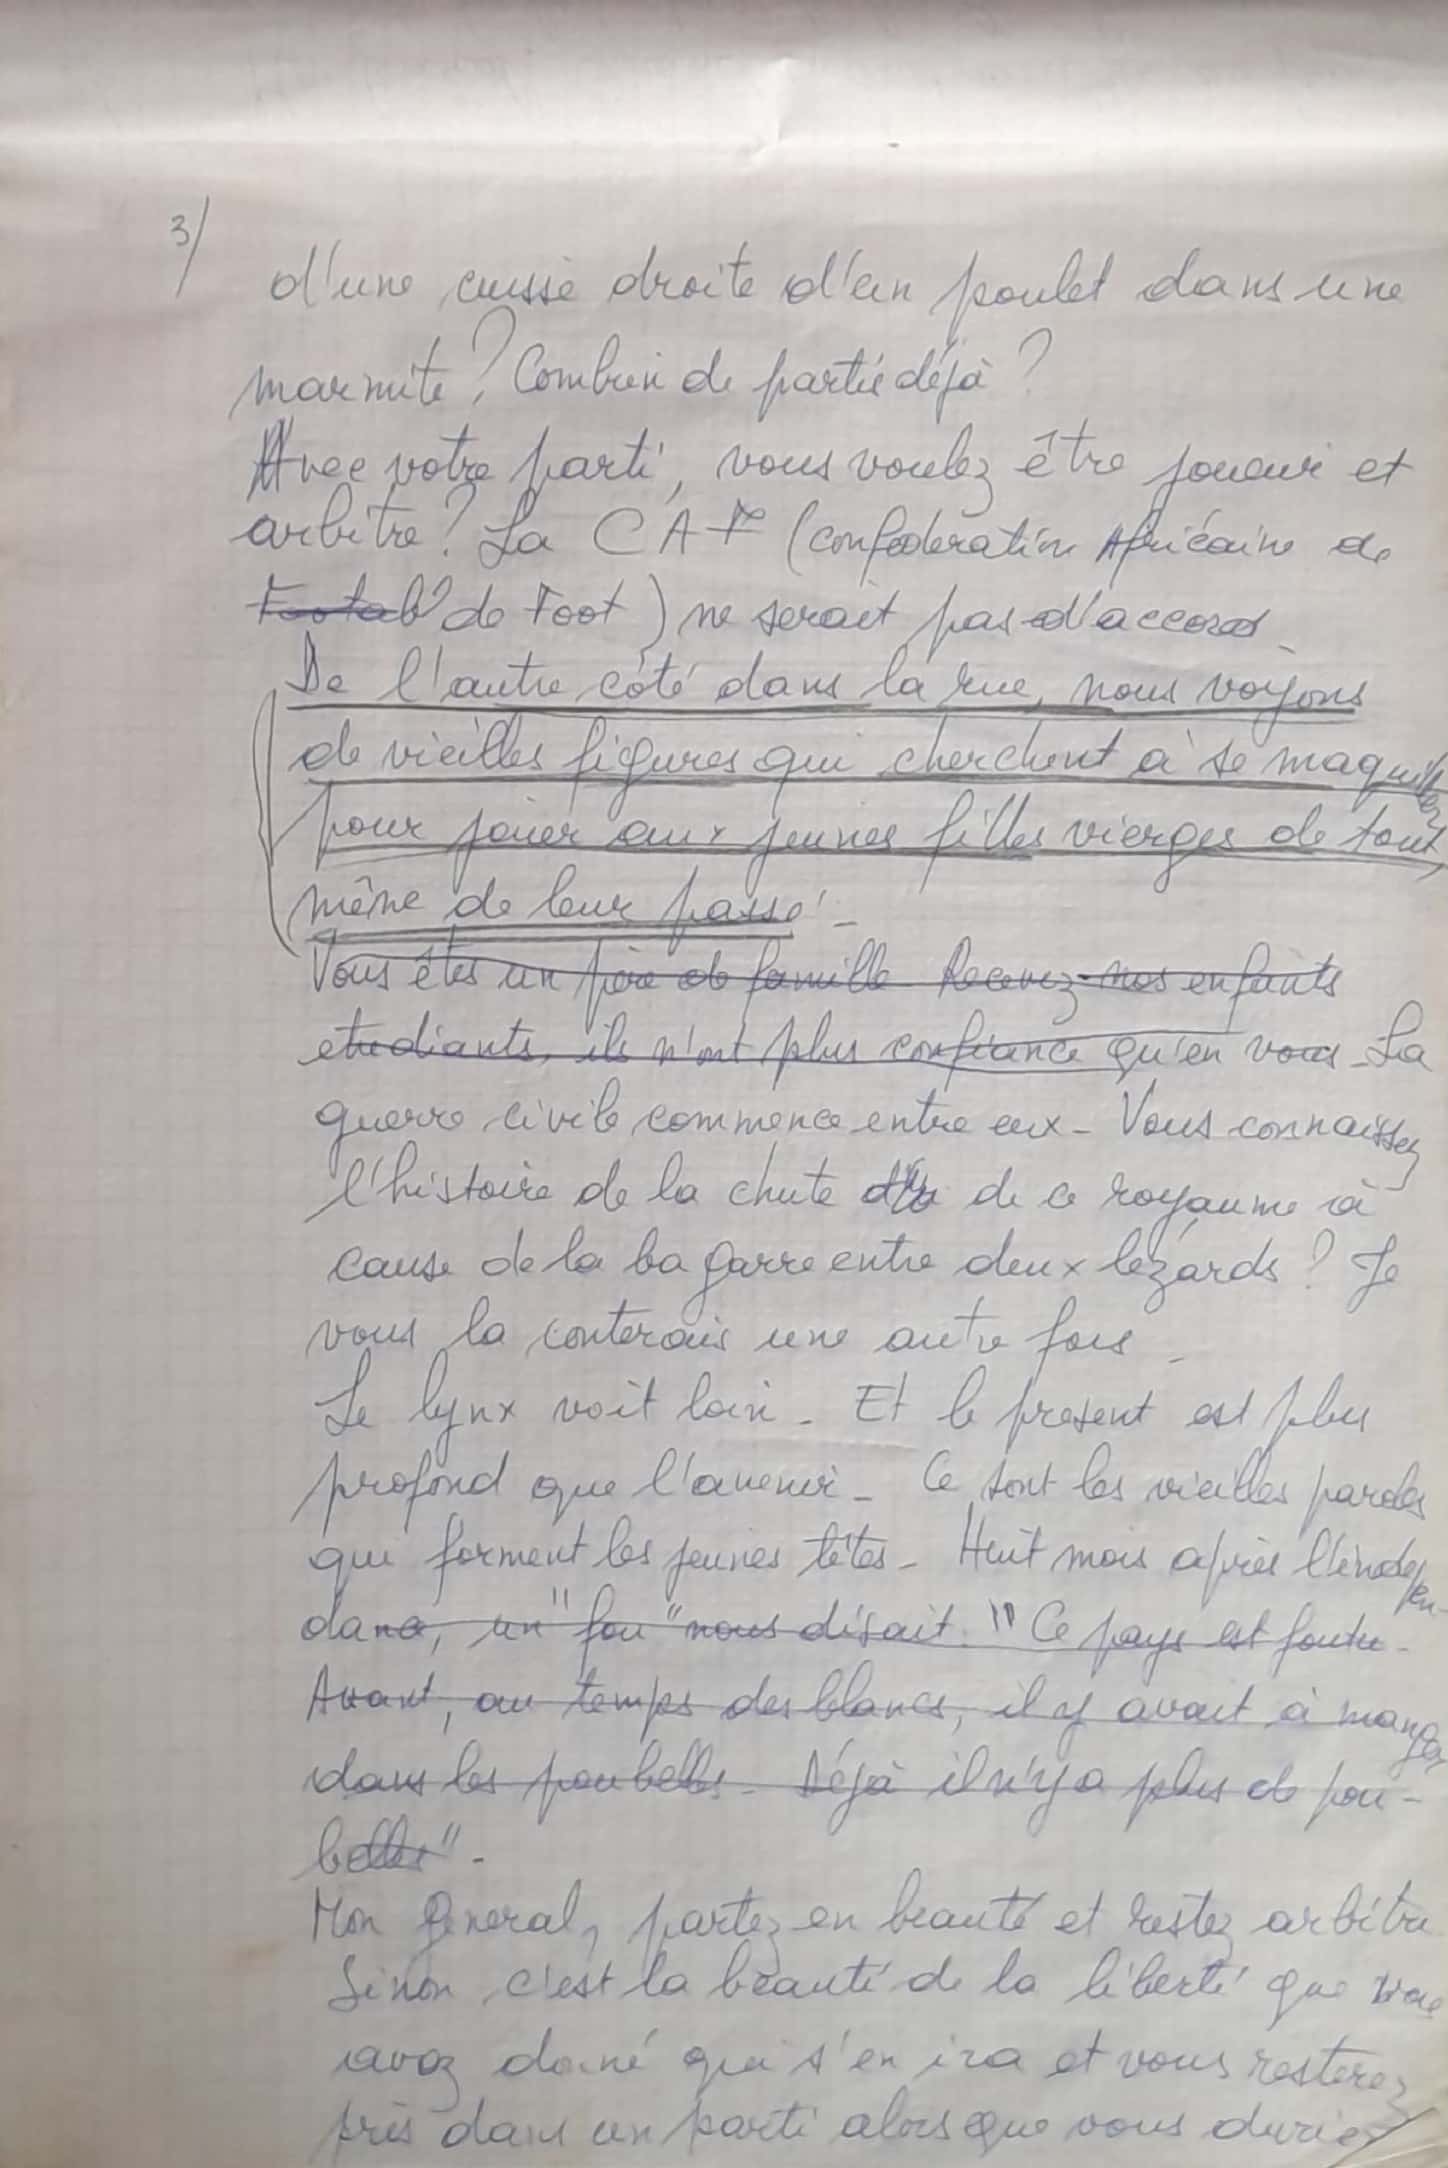 3/
d'une cuisse droite d'un poulet dans une
marmite? Combien de partis déjà?
Avec votre parti, vous voulez être joueur et
arbitre? La CAF (confederation Africaine de
Footab? de Foot) ne serait pas d'accord_
De l'autre côté dans la rue, nous voyons
de vieilles figures qui cherchent à se maquiller
pour jouer aux jeunes filles vierges de tout,
même de leur passé_
Vous êtes un père de famille. Recevez nos enfants
etudiants, ils n'ont plus confiance qu'en vous_La
guerre civile commence entre eux_ Vous connaissez
l'histoire de la chute de ce royaume à
cause de la bagarre entre deux lezards? Je
vous la conterais une autre fois_
Le lynx voit loin_ Et le present est plus
profond que l'avenir_ Ce sont les vieilles paroles
qui forment les jeunes têtes_ Huit mois après l'indépen-
dance, un "fou" nous disait: "Ce pays est foutu_
Avant, au temps des blancs, il y avait à manger
dans les poubelles_ Déjà il n'y a plus de pou-
belles"_
Mon General, partez en beauté et restez arbitre
Sinon c'est la beauté de la liberté que vous
avez donné qui s'en ira et vous resterez
pris dans un parti alors que vous